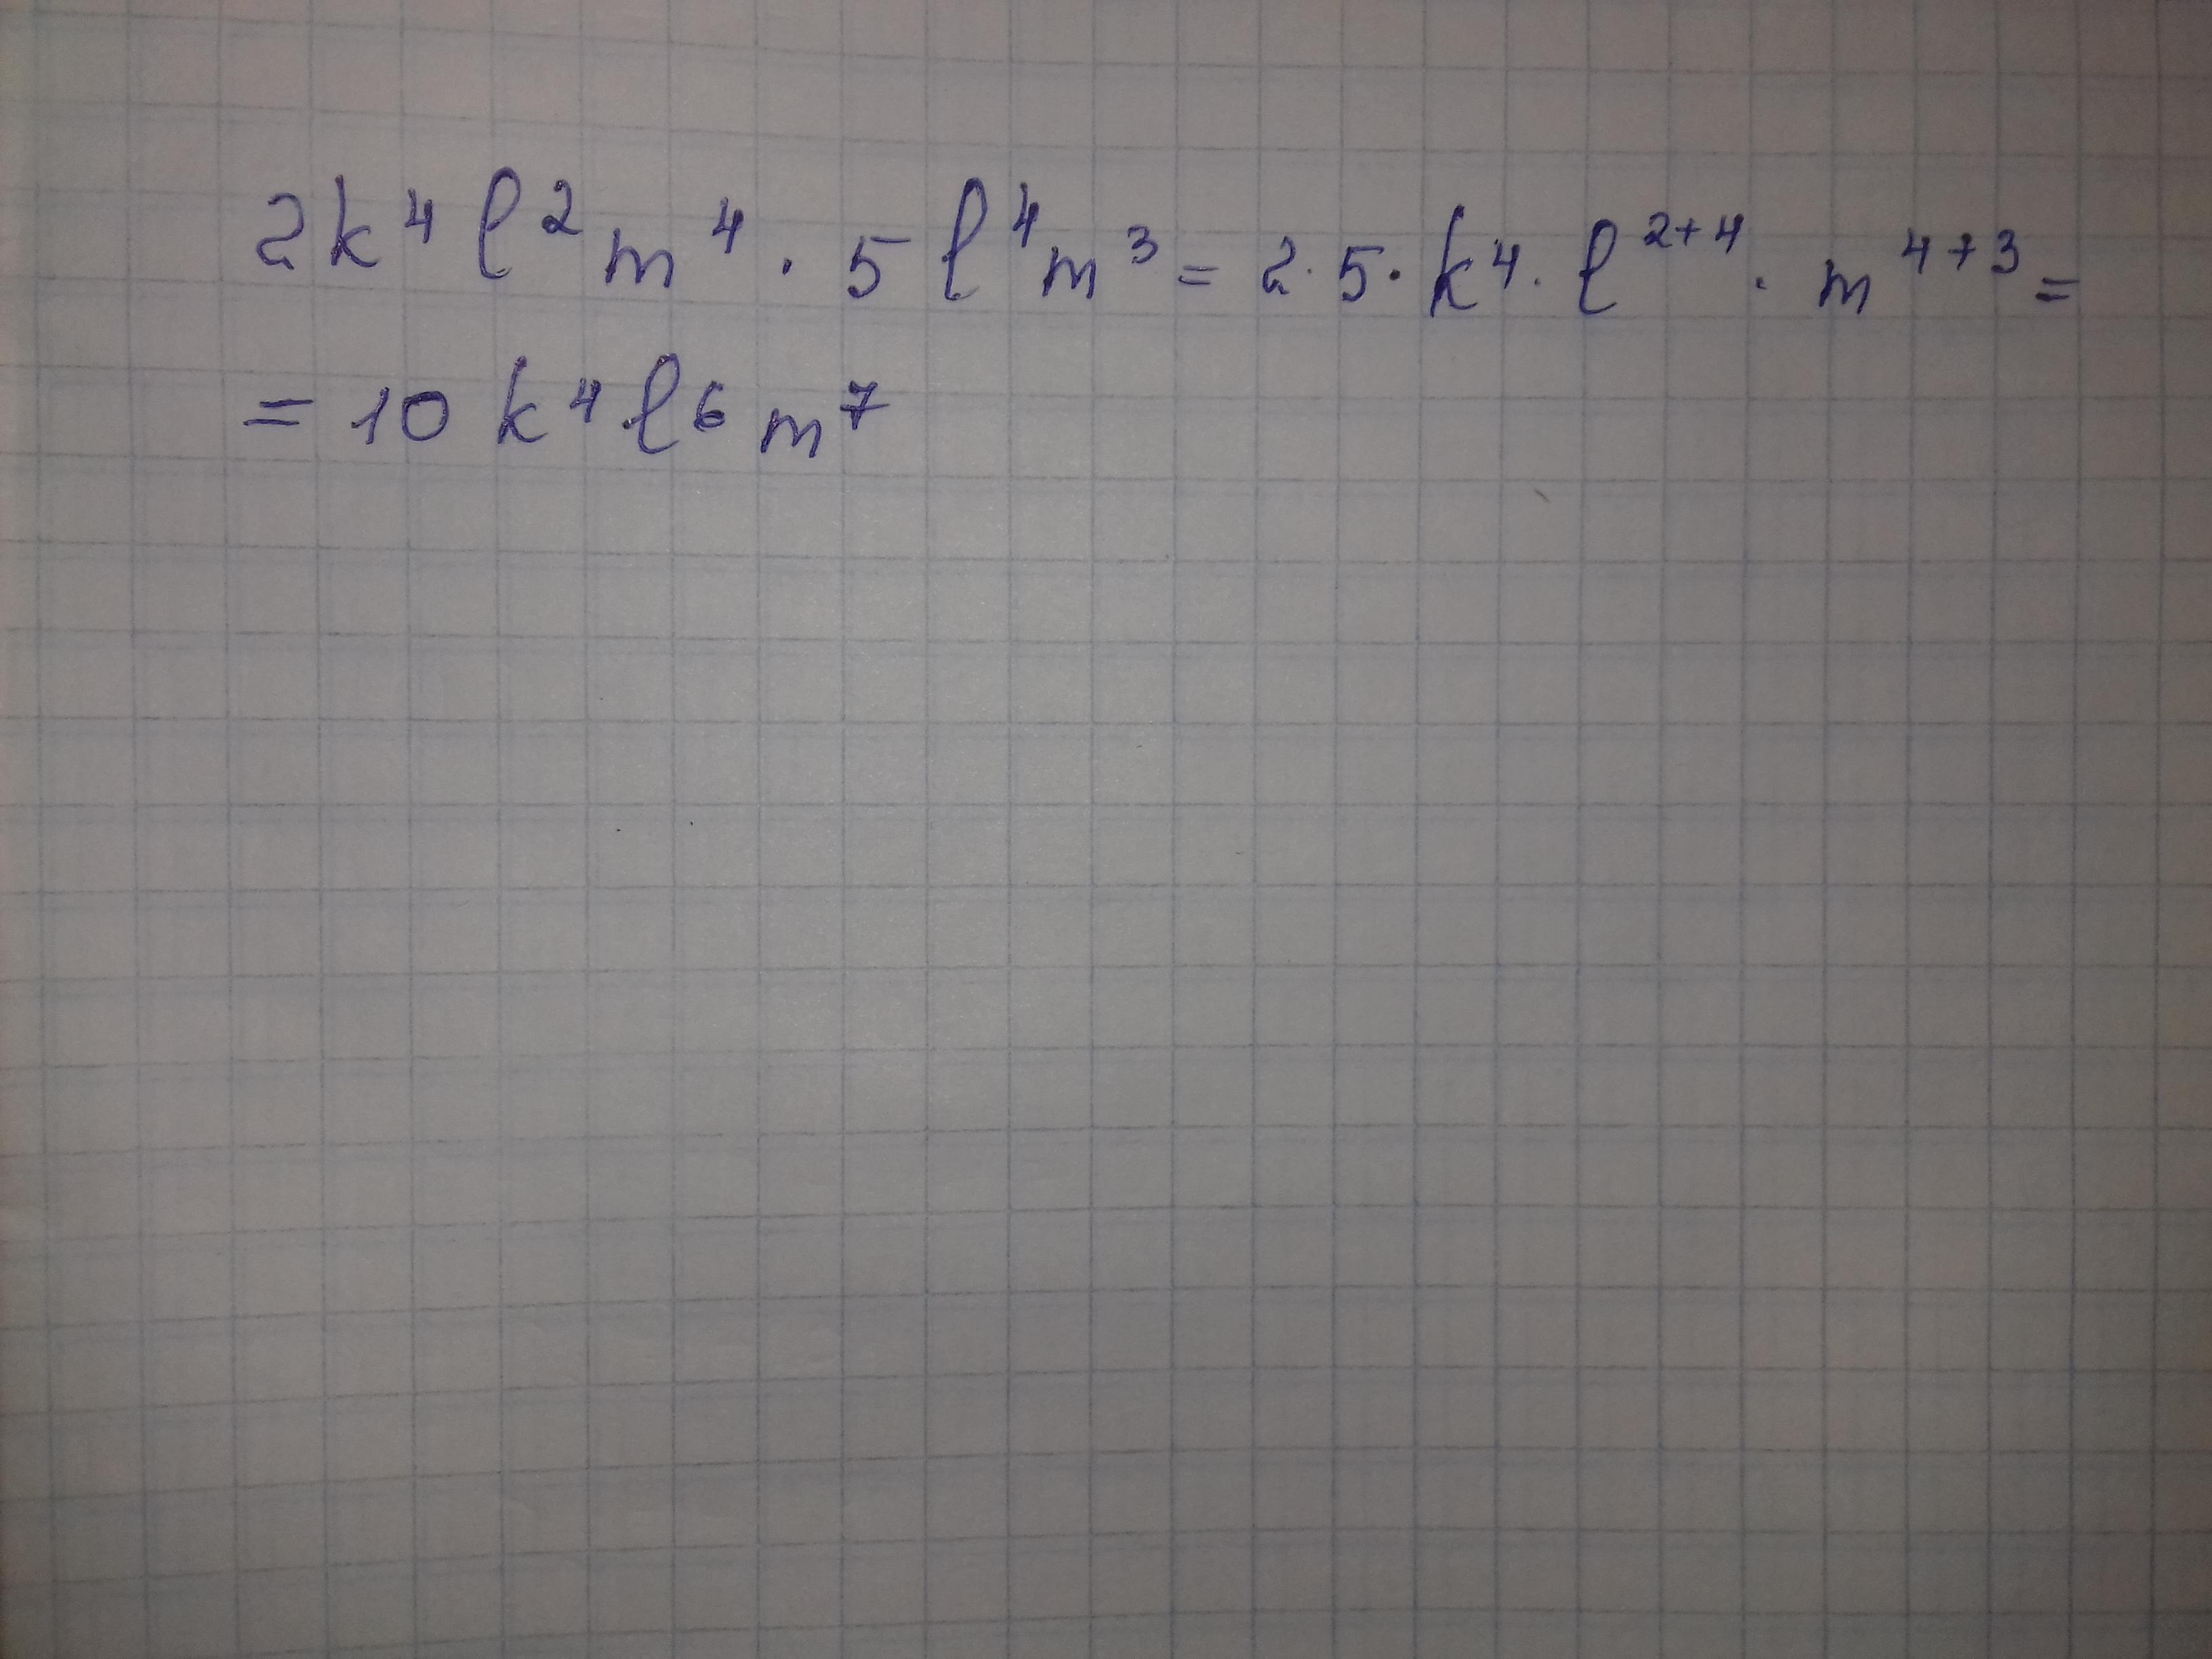 2k⁴ℓ²m⁴ · 5ℓ⁴m³ = 2 · 5 · k⁴ · ℓ²⁺⁴ · m⁴⁺³ =
= 10 k⁴ℓ⁶m⁷